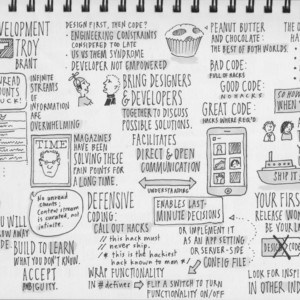 EVELOPMENT
TROY
BRANT
NREAD
OUNTS
UCK!
INFINITE
STREAMS
OF
INFORMATION
ARE
OVERWHELMING
DESIGN FIRST, THEN CODE?
ENGINEERING CONSTRAINTS
CONSIDERED TOO LATE
US VS THEM SYNDROME
DEVELOPER NOT EMPOWERED
PEANUT BUTTER
AND CHOCOLATE:
THE BEST OF BOTH WORLDS
BAD CODE:
FULL OF HACKS
GOOD CODE:
NO HACKS
GREAT CODE:
HACKS WHERE REQ'D
BRING DESIGNERS
& DEVELOPERS
TOGETHER TO DISCUSS
POSSIBLE SOLUTIONS.
FACILITATES
DIRECT & OPEN
COMMUNICATION
UNDERSTANDING
TIME
MAGAZINES
HAVE BEEN
SOLVING THESE
PAIN POINTS FOR
A LONG TIME.
No unread
counts.
Content stream
is curated, not
infinite.
SO HOW
WHEN
SHIP IT
OU WILL
OW AWAY
DE.
BUILD TO LEARN
WHAT YOU DON'T KNOW.
ACCEPT
AMBIGUITY.
DEFENSIVE
CODING:
CALL OUT HACKS
// this hack must
never ship.
// this is the hackiest
hack known to man
WRAP FUNCTIONALITY
IN #defines
FLIP A SWITCH TO TURN
FUNCTIONALITY ON/OFF
ENABLES LAST-
MINUTE DECISIONS
OR IMPLEMENT IT
AS AN APP SETTING
OR SERVER-SIDE
CONFIG FILE
YOUR FIRS
RELEASE WO
BE YOUR LA
DESIGN
CODE
LOOK FOR INSPI
IN OTHER IND